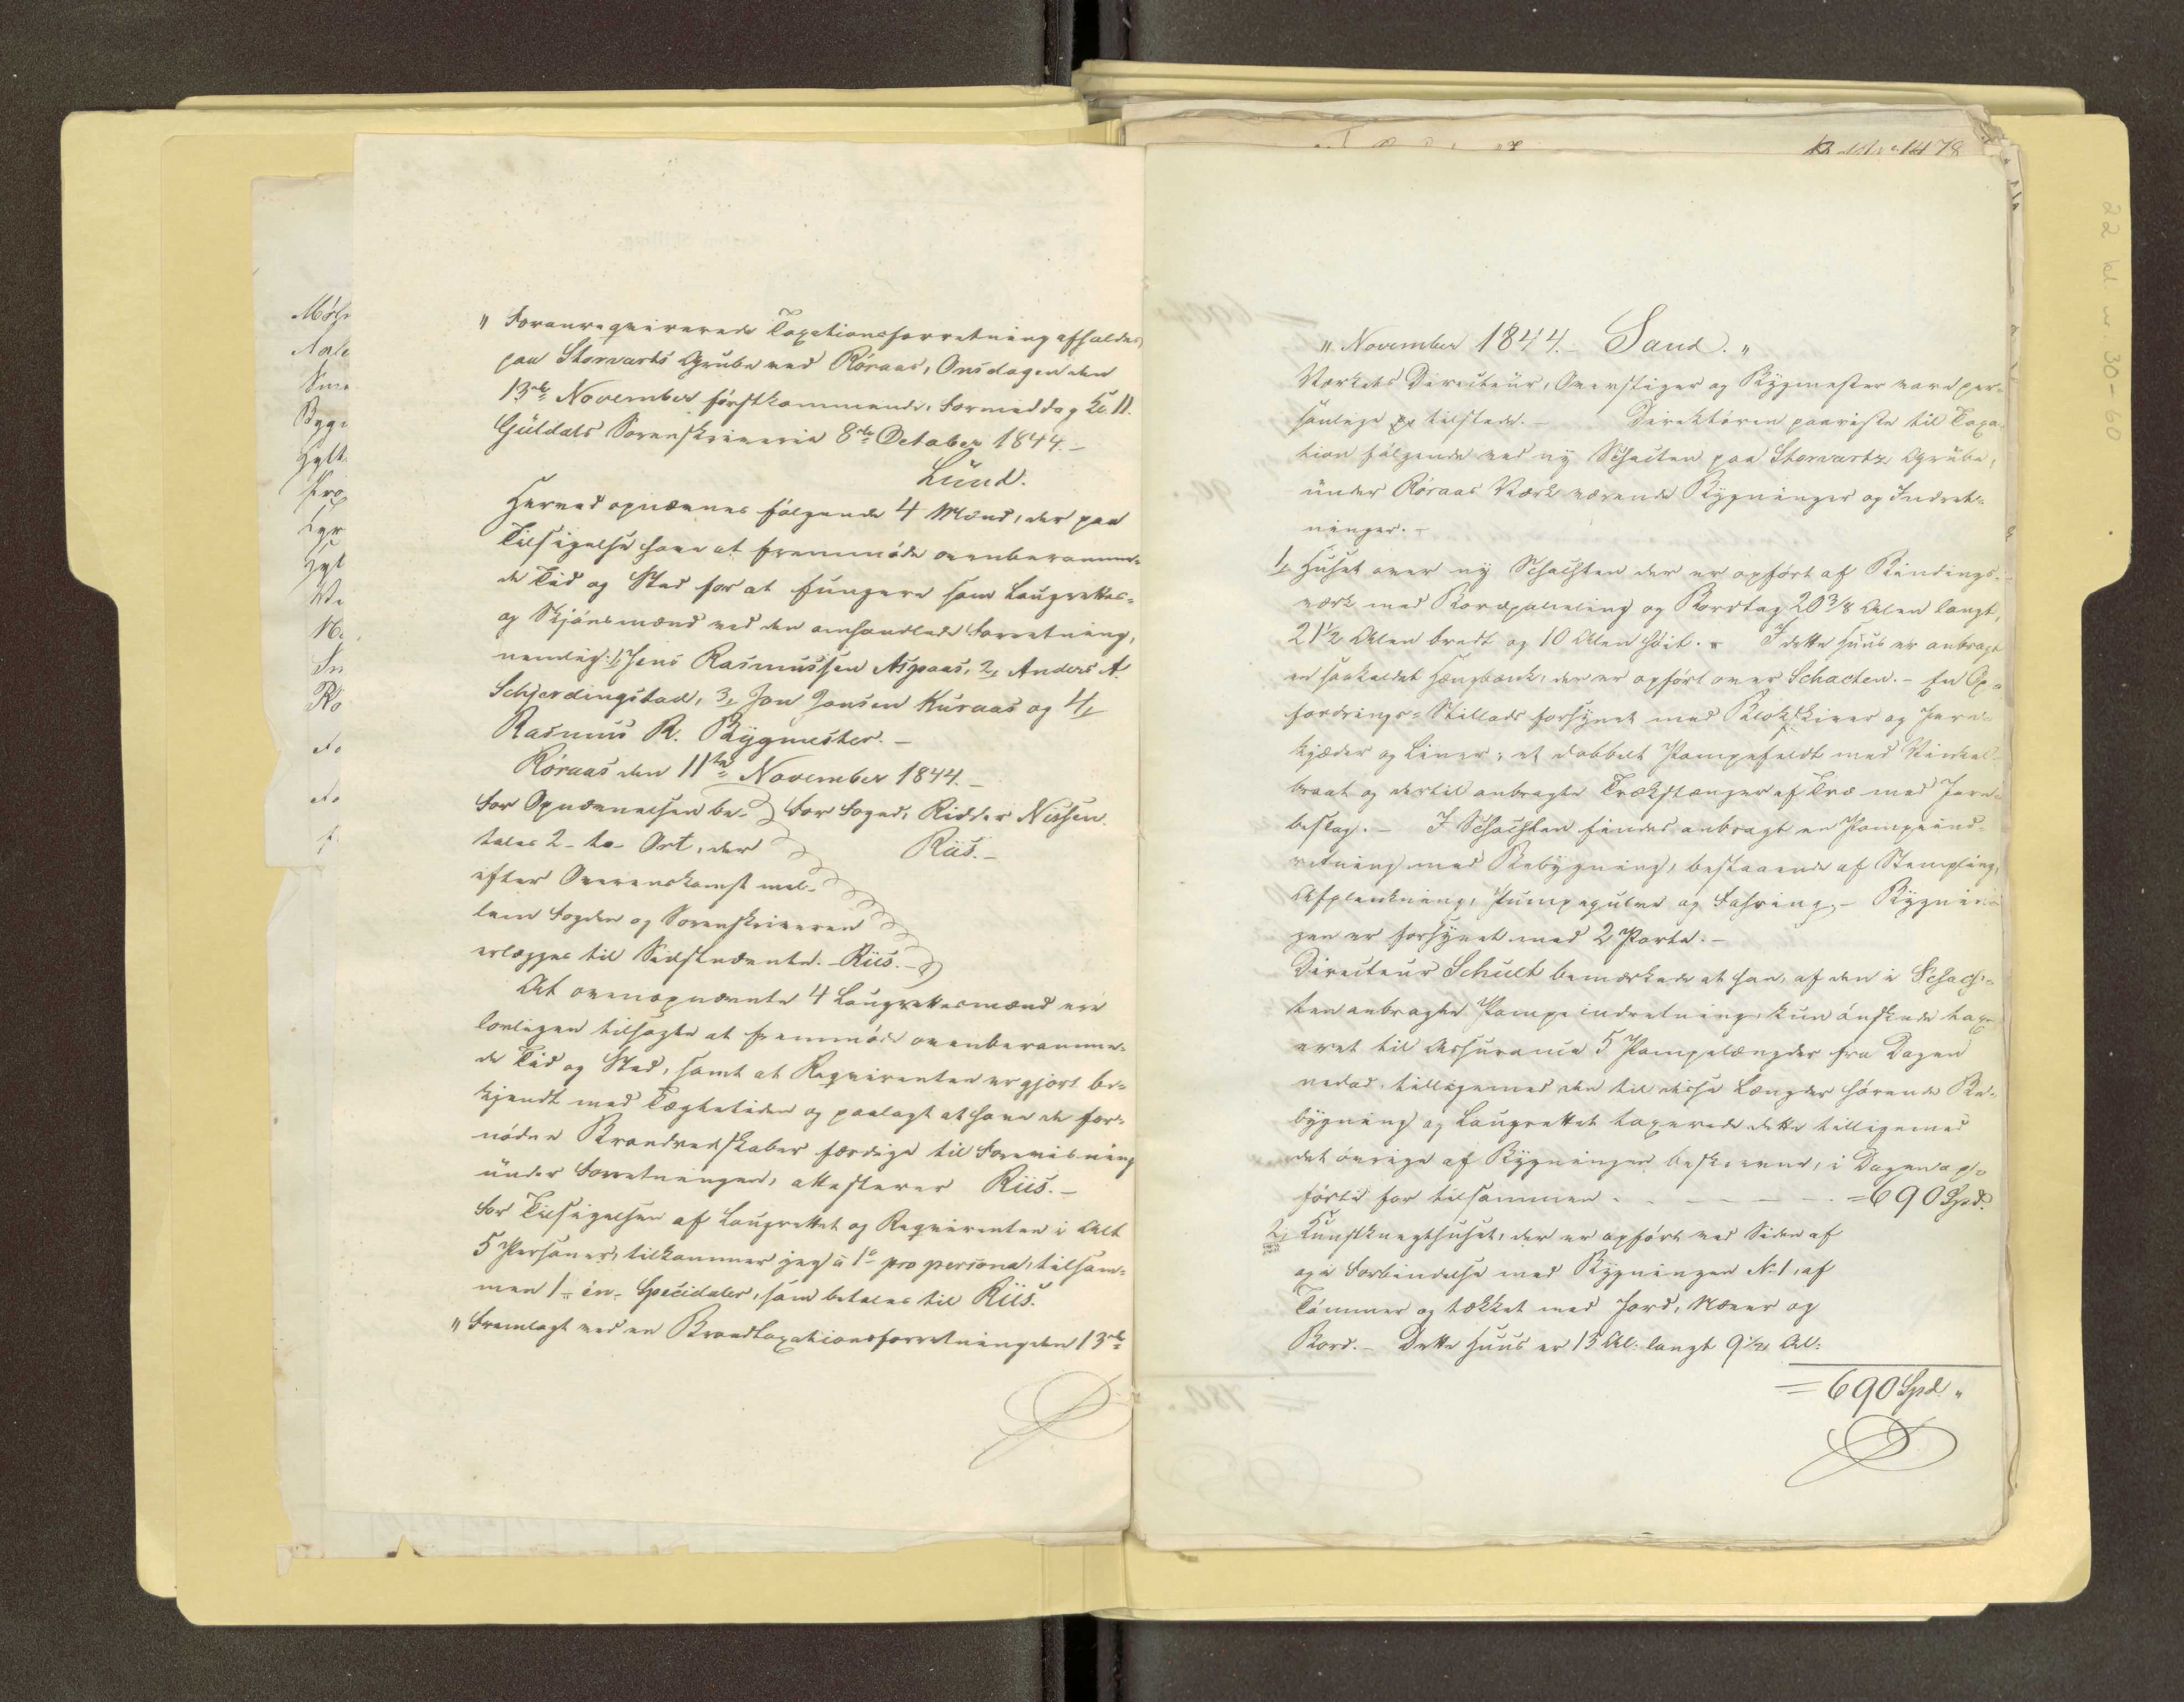 " Foranreqvirerede Taxationsforretning afholdes
paa Storvarts Grube ved Röraas, Onsdagen den
13de November förstkommende, Formiddag Kl. 11.
Guldals Sorenskriverie 8de October 1844.-
Lund.
Herved opnævnes fölgende 4 Mænd, der paa
Tilsigelse have at fremmöde ovenberamme-
de Tid og Sted for at fungere som Laugrettes-
og Skjönsmænd ved den omhandlede Forretning,
nemlig: 1, Jens Rasmussen Aspaas, 2, Anders A.
Schjerdingstad, 3, Jon Jonsen Kuraas og 4,
Rasmus R. Bygmester.-
Röraas den 11te November 1844.-
For Opnævnelsen be- For Foged, Ridder Nissen.
tales 2- to- Ort, der Riis.-
efter Overenskomst mel-
lem Fogden og Sorenskriveren
erlægges til Sidstnævnte. Riis.-
At ovenopnævnte 4 Laugrettesmænd ere
lovligen tilsagte at fremmöde ovenberamme-
de Tid og Sted, samt at Reqvirenten er gjort be-
kjendt med Tægtetiden og paalagt at have de for-
nödne Brandredskaber færdige til Forevisning
under Forretningen, attesterer Riis.-
For Tilsigelsen af Laugrettet og Reqvirenten i Alt
5 Personer, tilkommer jeg à 1 pro persona, tilsam-
men 1- én- Speciedaler, som betales til Riis.
" Fremlagt ved en Brandtaxationsforretning den 13de
22 kl. nr. 30-60
No 1478
" November 1844.- Sand. "
Værkets Directeur, Overstiger og Bygmester vare per-
sonlige tilstede.- Direktören paaviste til Taxa-
tion fölgende ved ny Schacten paa Storvartz Grube,
under Röraas Værk værende Bygninger og Indret-
ninger.-
1, Huset over ny Schachten der er opfört af Bindings-
værk med Bordpaneling og Bordtag 20 3/8 Alen langt,
21 1/2 Alen bredt og 10 Alen höit.- I dette Huus er anbragt
en saakaldet Hængbænk, der er opfört over Schacten.- En Op-
fordrings-Stillads forsynet med Blokskiver og Jern-
kjæder og Liner, et dobbelt Pompefeldt med Vinkel-
braat og dertil anbragte Trækstanger af Træ med Jern-
beslag.- I Schachten findes anbragt en Pompeind-
retning med Bebygning, bestaaende af Stempling,
Afplankning, Pumpegulve og Fahring.- Bygnin-
gen er forsynet med 2 Porte.-
Directeur Schult bemærkede at han, af den i Schach-
ten anbragte Pompeindretning, kun önskede tax-
eret til Assurance 5 Pompelængder fra Dagen
nedad, tilligemed den til disse Længder hörende Be-
bygning og Laugrettet taxerede dette tilligemed
det övrige af Bygningen beskrevne, i Dagen op-
förte for tilsammen - - - - - =690 Spd.
2, Kunstknegthuset, der er opfört ved Siden af
og i Forbindelse med Bygningen N. 1, af
Tömmer og tækket med Jord, Næver og
Bord.- Dette Huus er 15 Al: langt 9 1/2 Al:
=690 Spd. "